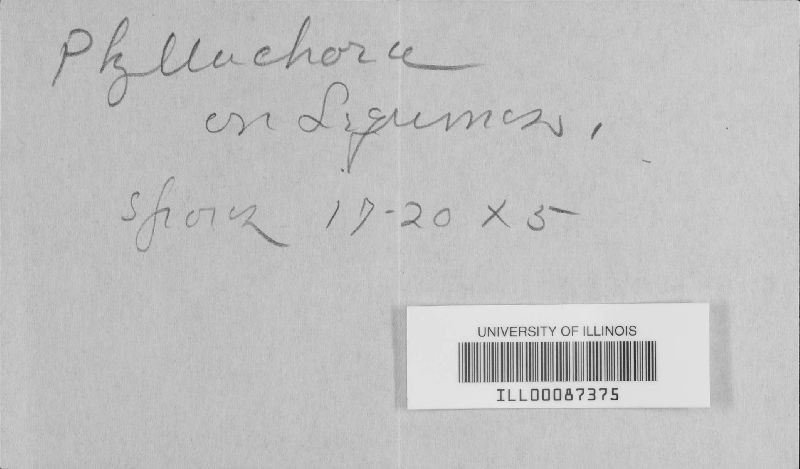 Phyllachora
on Legumes,
spores 17-20 X 5
UNIVERSITY OF ILLINOIS
ILL00087375